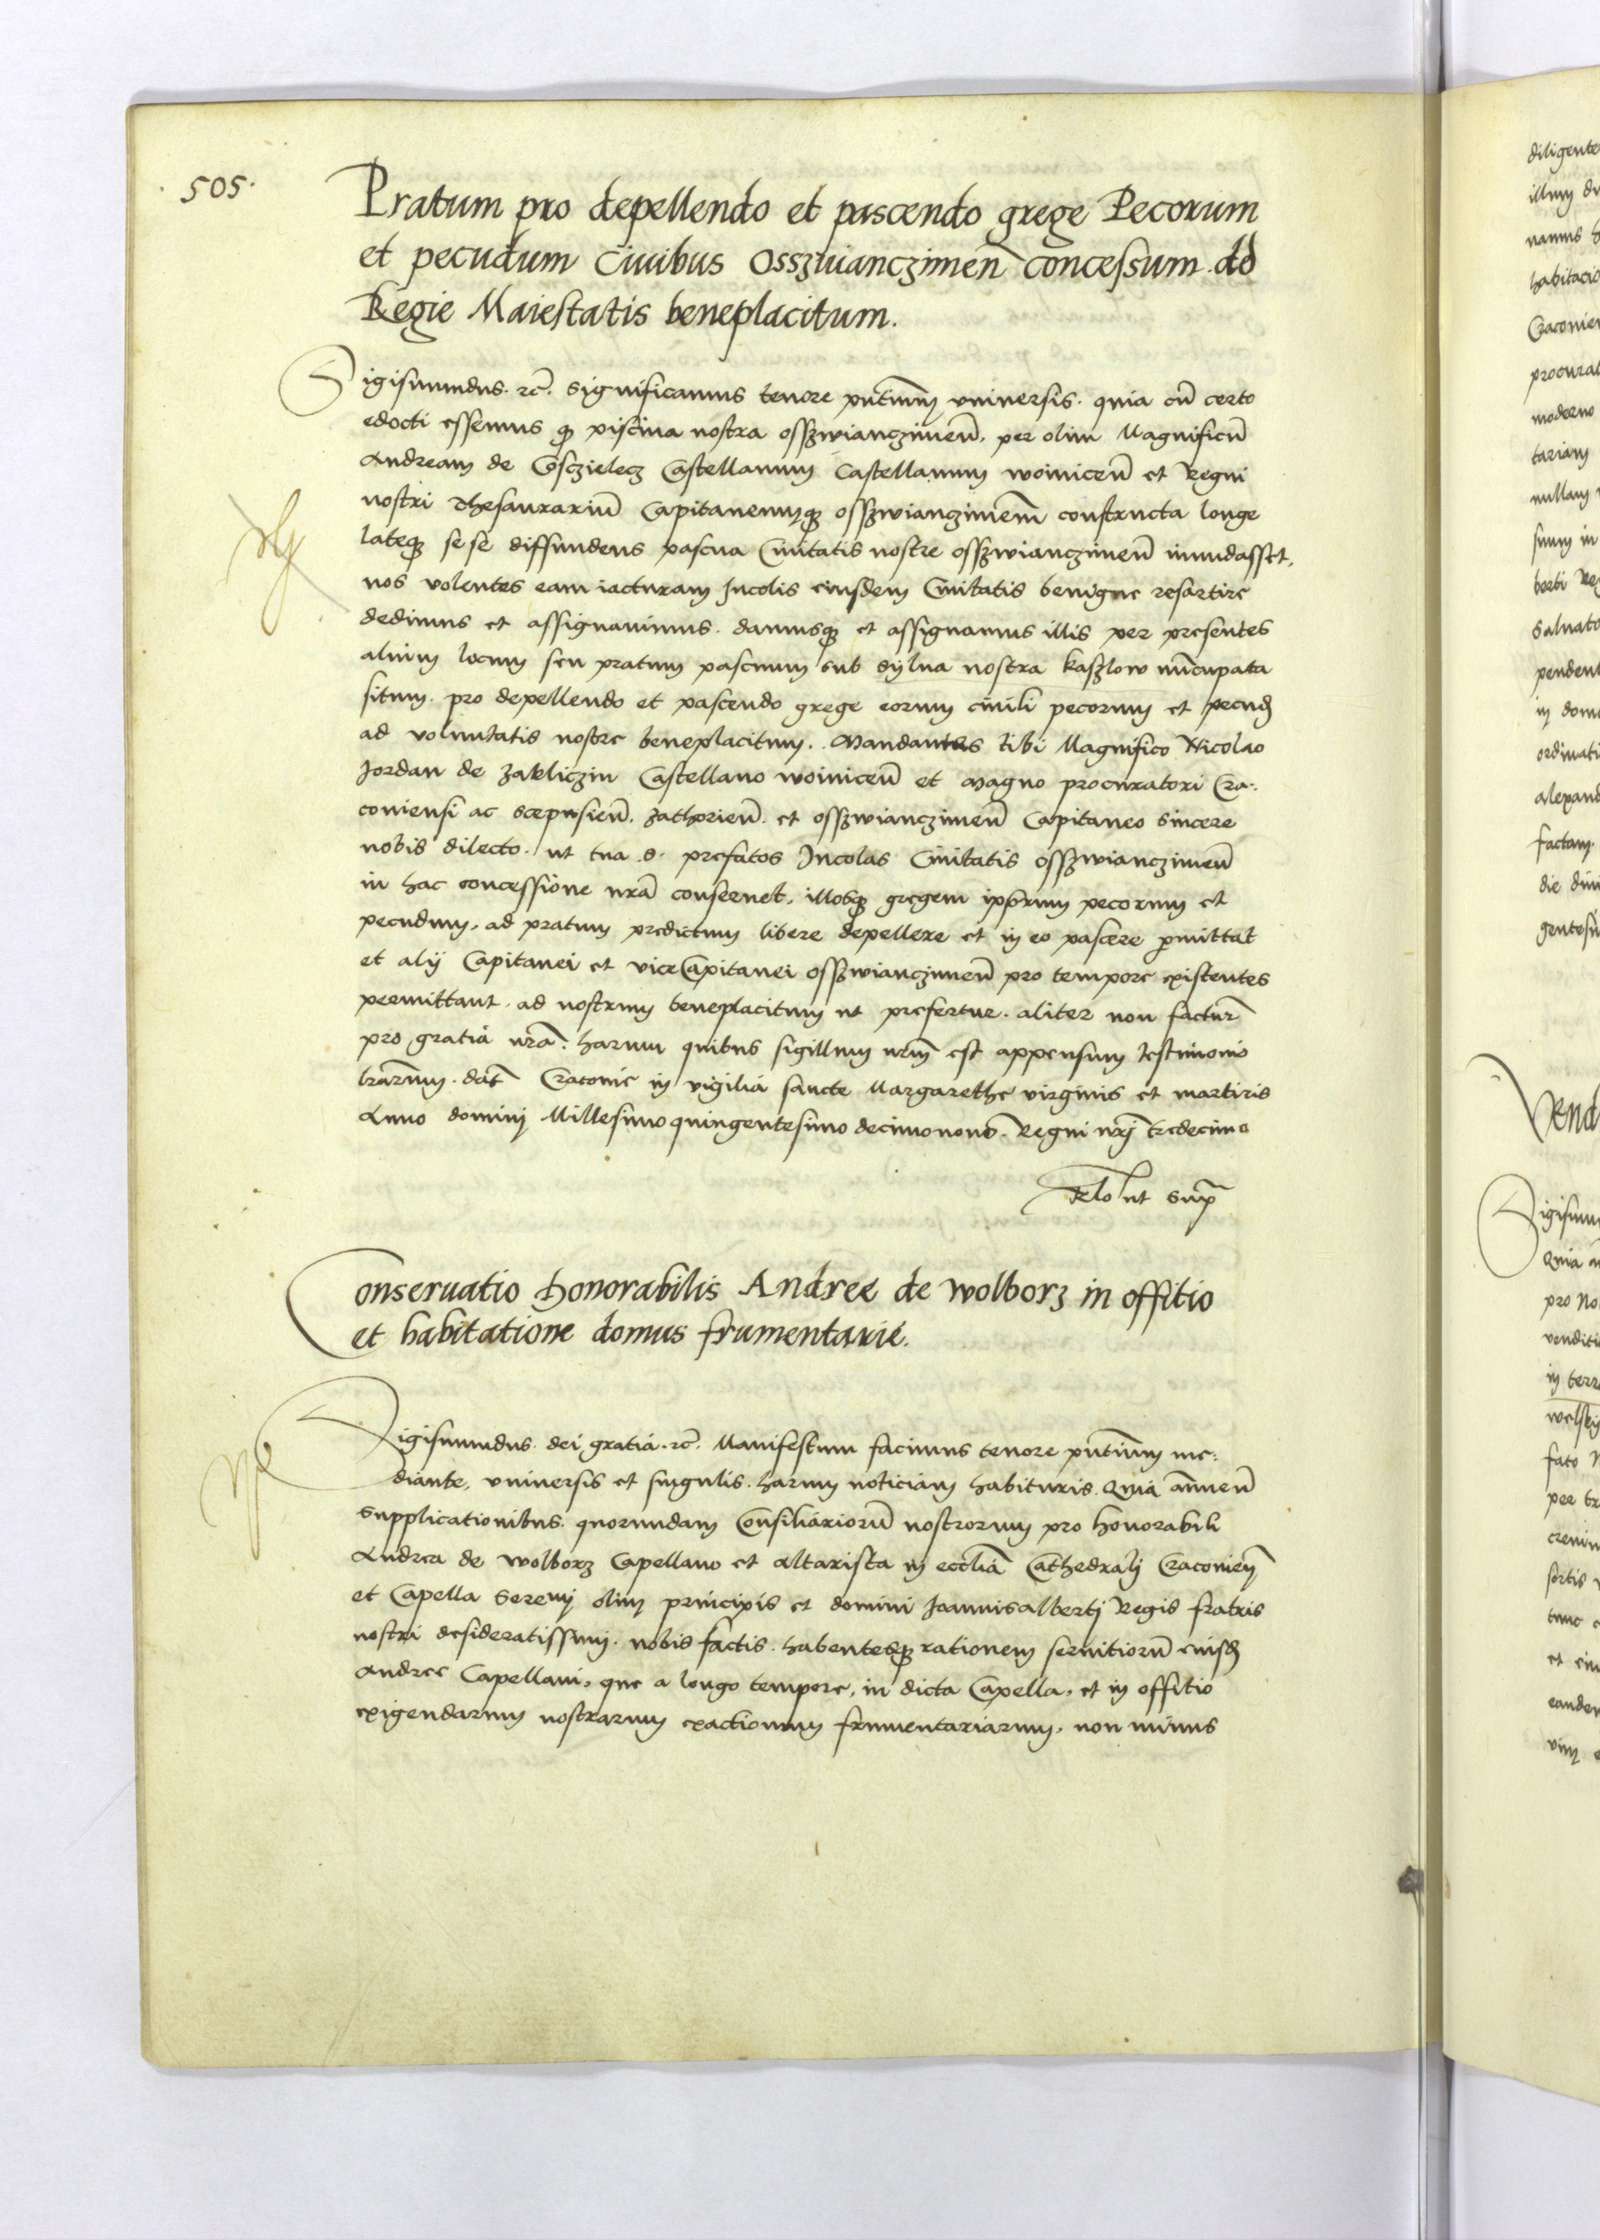 505.
Pratum pro depellendo et pascendo grege Pecorum
et pecudum Ciuibus Osszwianczimen̄ concessum ad
Regie Maiestatis beneplacitum.
Sigismundus. rc̄. Significamus tenore pn̄tium vniuersis. quia cū certo
edocti essemus q̨ piscina nostra osszwianczimen̄. per olim Magnificū
Andream de Cosczielecz Castellanum Castellanum woinicen̄ et Regni
nostri Thesaurariū Capitaneumq̨ osszwianczimen̄ constructa longe
lateq̨ se se diffundens pascua Ciuitatis nostre osszwianczimen̄ inundasset,
nos volentes eam iacturam Incolis eiusdem Ciuitatis benigne resartire
dedimus et assignauimus. damusq̨ et assignamus illis per presentes
alium locum seu pratum pascuum sub sylua nostra Kaszlow nūcupata
situm. pro depellendo et pascendo grege eorum ciuili pecorum et pecud̄
ad voluntatis nostre beneplacitum. Mandantes tibi Magnifico Nicolao
Jordan de Zakliczin Castellano woinicen̄ et Magno procuratori Cra-
couiensi ac scepusien̄. Zathorien̄. et osszwianczimen̄ Capitaneo sincere
nobis dilecto. ut tua .s. prefatos Incolas Ciuitatis osszwianczimen̄
in hac concessione nrā conseruet, illosq̨ gregem ipsorum pecorum et
pecudum, ad pratum predictum libere depellere et in eo pascere p̄mittat
et alij Capitanei et viceCapitanei osszwianczimen̄ pro tempore existentes
permittant. ad nostrum beneplacitum ut prefertur. aliter non factur̄
pro gratia nrā. harum quibus sigillum nr̄m est appensum testimonio
lr̄arum. dat̄ Cracouie in vigilia sancte Margarethe virginis et martiris
Anno domini Millesimo quingentesimo decimonono. Regni nr̄j tredecimo
Relo ut sup̄
Conseruatio honorabilis Andree de Wolborz in offitio
et habitatione domus frumentarie.
Sigismundus. dei gratia. rc̄. Manifestum facimus tenore pn̄tium me-
diante, vniuersis et singulis. harum noticiam habituris. Quia annuen̄
supplicationibus. quorundam Consiliariorū nostrorum pro honorabili
Andrea de wolborz Capellano et altarista in eccl̄ia Cathedralj Cracouien̄
et Capella Serenj olim principis et domini Joannisalbertj Regis fratris
nostri desideratissimj. nobis factis. habentesq̨ rationem seruitiorū eiusd̄
Andree Capellani, que a longo tempore, in dicta Capella, et in offitio
exigendarum nostrarum exactionum frumentariarum, non minus